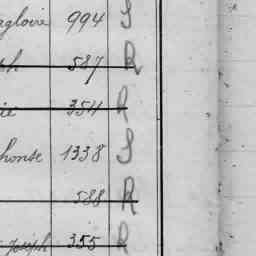 agloire 994 S
ph 587 R
ie 354 R
honse 1338 S
588 R
Joseph 355 R